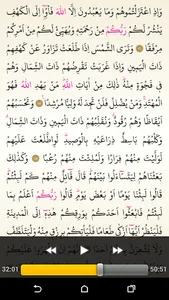 وَإِذِ ٱعْتَزَلْتُمُوهُمْ وَمَا يَعْبُدُونَ إِلَّا ٱللَّهَ فَأْوُۥٓا۟ إِلَى ٱلْكَهْفِ
يَنشُرْ لَكُمْ رَبُّكُم مِّن رَّحْمَتِهِۦ وَيُهَيِّئْ لَكُم مِّنْ أَمْرِكُم
مِّرْفَقًا ١٦ وَتَرَى ٱلشَّمْسَ إِذَا طَلَعَت تَّزَٰوَرُ عَن كَهْفِهِمْ
ذَاتَ ٱلْيَمِينِ وَإِذَا غَرَبَت تَّقْرِضُهُمْ ذَاتَ ٱلشِّمَالِ وَهُمْ
فِى فَجْوَةٍ مِّنْهُ ذَٰلِكَ مِنْ ءَايَٰتِ ٱللَّهِ مَن يَهْدِ ٱللَّهُ فَهُوَ
ٱلْمُهْتَدِ وَمَن يُضْلِلْ فَلَن تَجِدَ لَهُۥ وَلِيًّا مُّرْشِدًا ١٧ وَتَحْسَبُهُمْ
أَيْقَاظًا وَهُمْ رُقُودٌ وَنُقَلِّبُهُمْ ذَاتَ ٱلْيَمِينِ وَذَاتَ ٱلشِّمَالِ
وَكَلْبُهُم بَٰسِطٌ ذِرَاعَيْهِ بِٱلْوَصِيدِ لَوِ ٱطَّلَعْتَ عَلَيْهِمْ
لَوَلَّيْتَ مِنْهُمْ فِرَارًا وَلَمُلِئْتَ مِنْهُمْ رُعْبًا ١٨ وَكَذَٰلِكَ
بَعَثْنَٰهُمْ لِيَتَسَآءَلُوا۟ بَيْنَهُمْ قَالَ قَآئِلٌ مِّنْهُمْ كَمْ لَبِثْتُمْ قَالُوا۟
لَبِثْنَا يَوْمًا أَوْ بَعْضَ يَوْمٍ قَالُوا۟ رَبُّكُمْ أَعْلَمُ بِمَا
لَبِثْتُمْ فَٱبْعَثُوٓا۟ أَحَدَكُم بِوَرِقِكُمْ هَٰذِهِۦٓ إِلَى ٱلْمَدِينَةِ
فَلْيَنظُرْ أَيُّهَآ أَزْكَىٰ طَعَامًا فَلْيَأْتِكُم بِرِزْقٍ مِّنْهُ وَلْيَتَلَطَّفْ
32:01 50:51